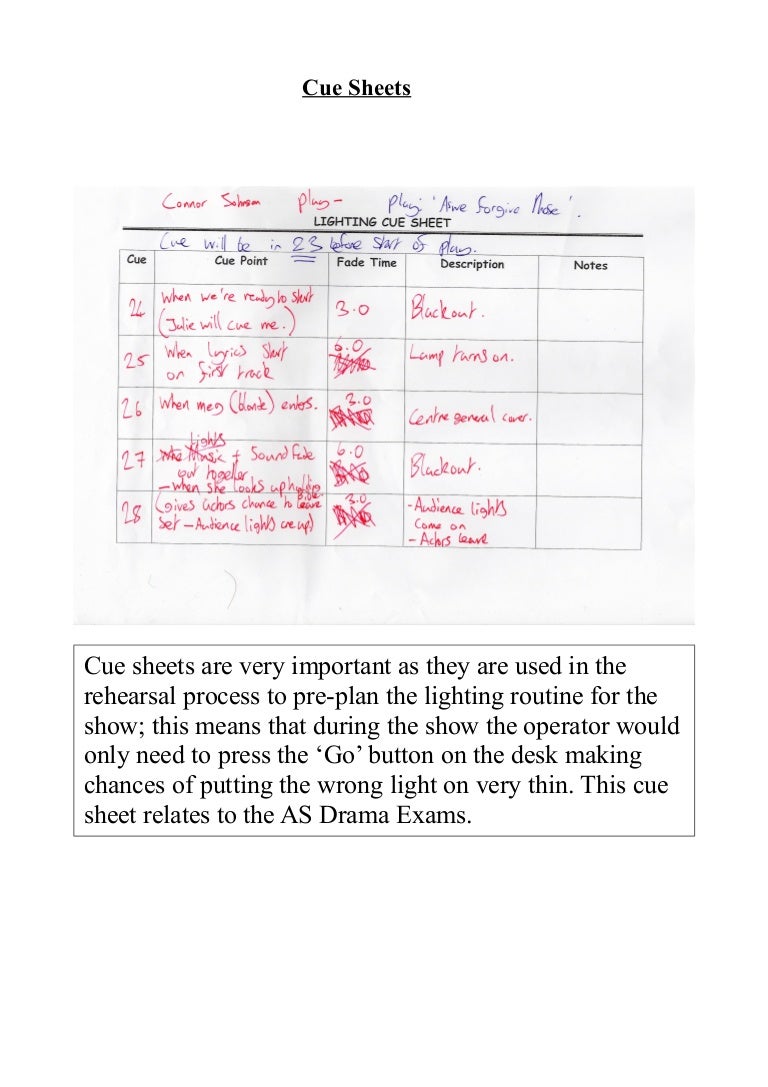 Cue Sheets
Connor Play- Play: 'As we forgive those'.
LIGHTING CUE SHEET
Cue will be in 23 before start of play.
Cue Cue Point Fade Time Description Notes
24 When we're ready to start 3.0 Blackout.
(Julie will cue me.)
25 When lyrics start 6.0 Lamp turns on.
on first track
26 When meg (blonde) enters. 3.0 Centre general cover.
lights
27 Music + Sound fade 6.0 Blackout.
out together
- when she looks up holding
Bible
28 (gives actors chance to leave 3.0 - Audience lights
set - Audience lights are up) come on
- Actors leave
Cue sheets are very important as they are used in the
rehearsal process to pre-plan the lighting routine for the
show; this means that during the show the operator would
only need to press the ‘Go’ button on the desk making
chances of putting the wrong light on very thin. This cue
sheet relates to the AS Drama Exams.